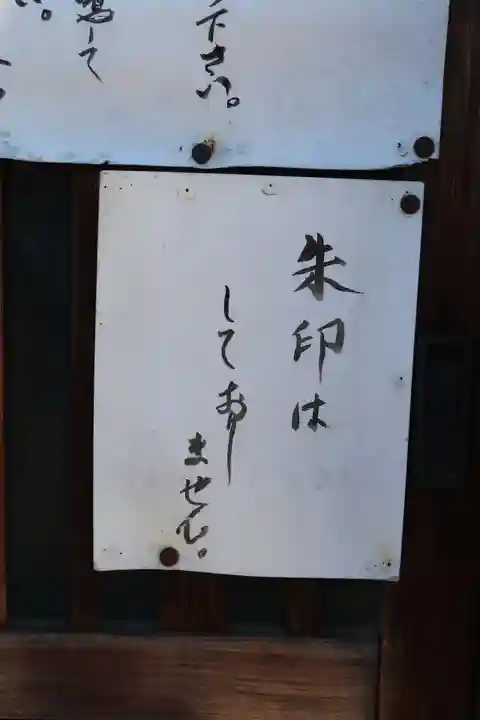 下さい。
鳴して
い。
朱印は
しておりません。